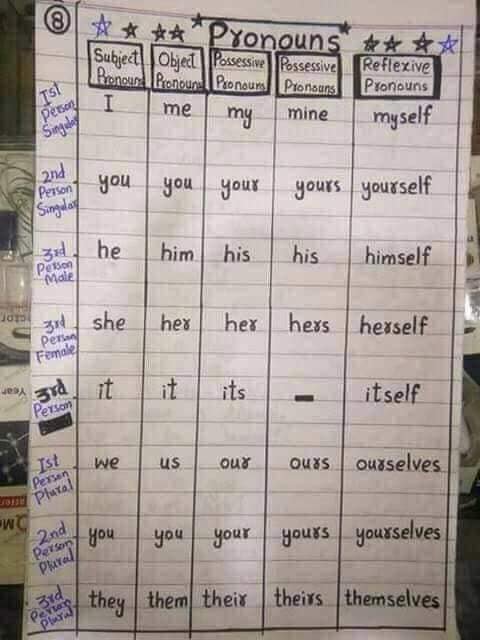 8 Pronouns
Subject Pronouns Object Pronouns Possessive Pronouns Possessive Pronouns Reflexive Pronouns
1st Person Singular I me my mine myself
2nd Person Singular you you your yours yourself
3rd Person Male he him his his himself
3rd Person Female she her her hers herself
3rd Person it it its - itself
1st Person Plural we us our ours ourselves
2nd Person Plural you you your yours yourselves
3rd Person Plural they them their theirs themselves